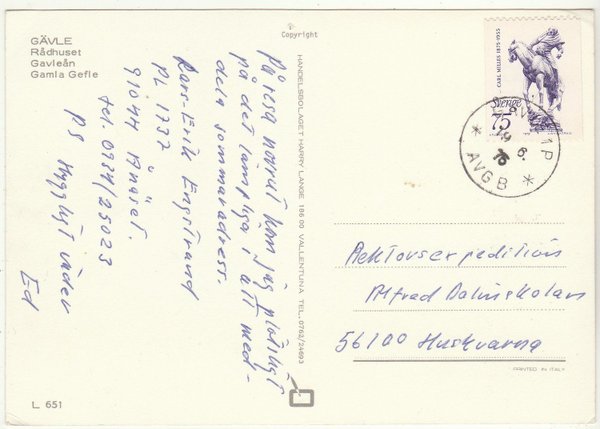 GÄVLE
Rådhuset
Gavleån
Gamla Gefle
Copyright
På resa norrut kan jag plötsligt
på det lämpliga i att med-
dela sommaradress.
Lars-Erik Engstrand
PL 1737
91044 Ånäset.
tel. 0934/25023
PS Hyggligt väder
Ed
HANDELSBOLAGET HARRY LANGE 186 00 VALLENTUNA TEL. 0762/24693
CARL MILLES 1875-1955
Sverige
75
19 6.
75
AVG B
Rektorsexpeditionen
Alfred Dalinskolan
56100 Huskvarna
PRINTED IN ITALY
L 651